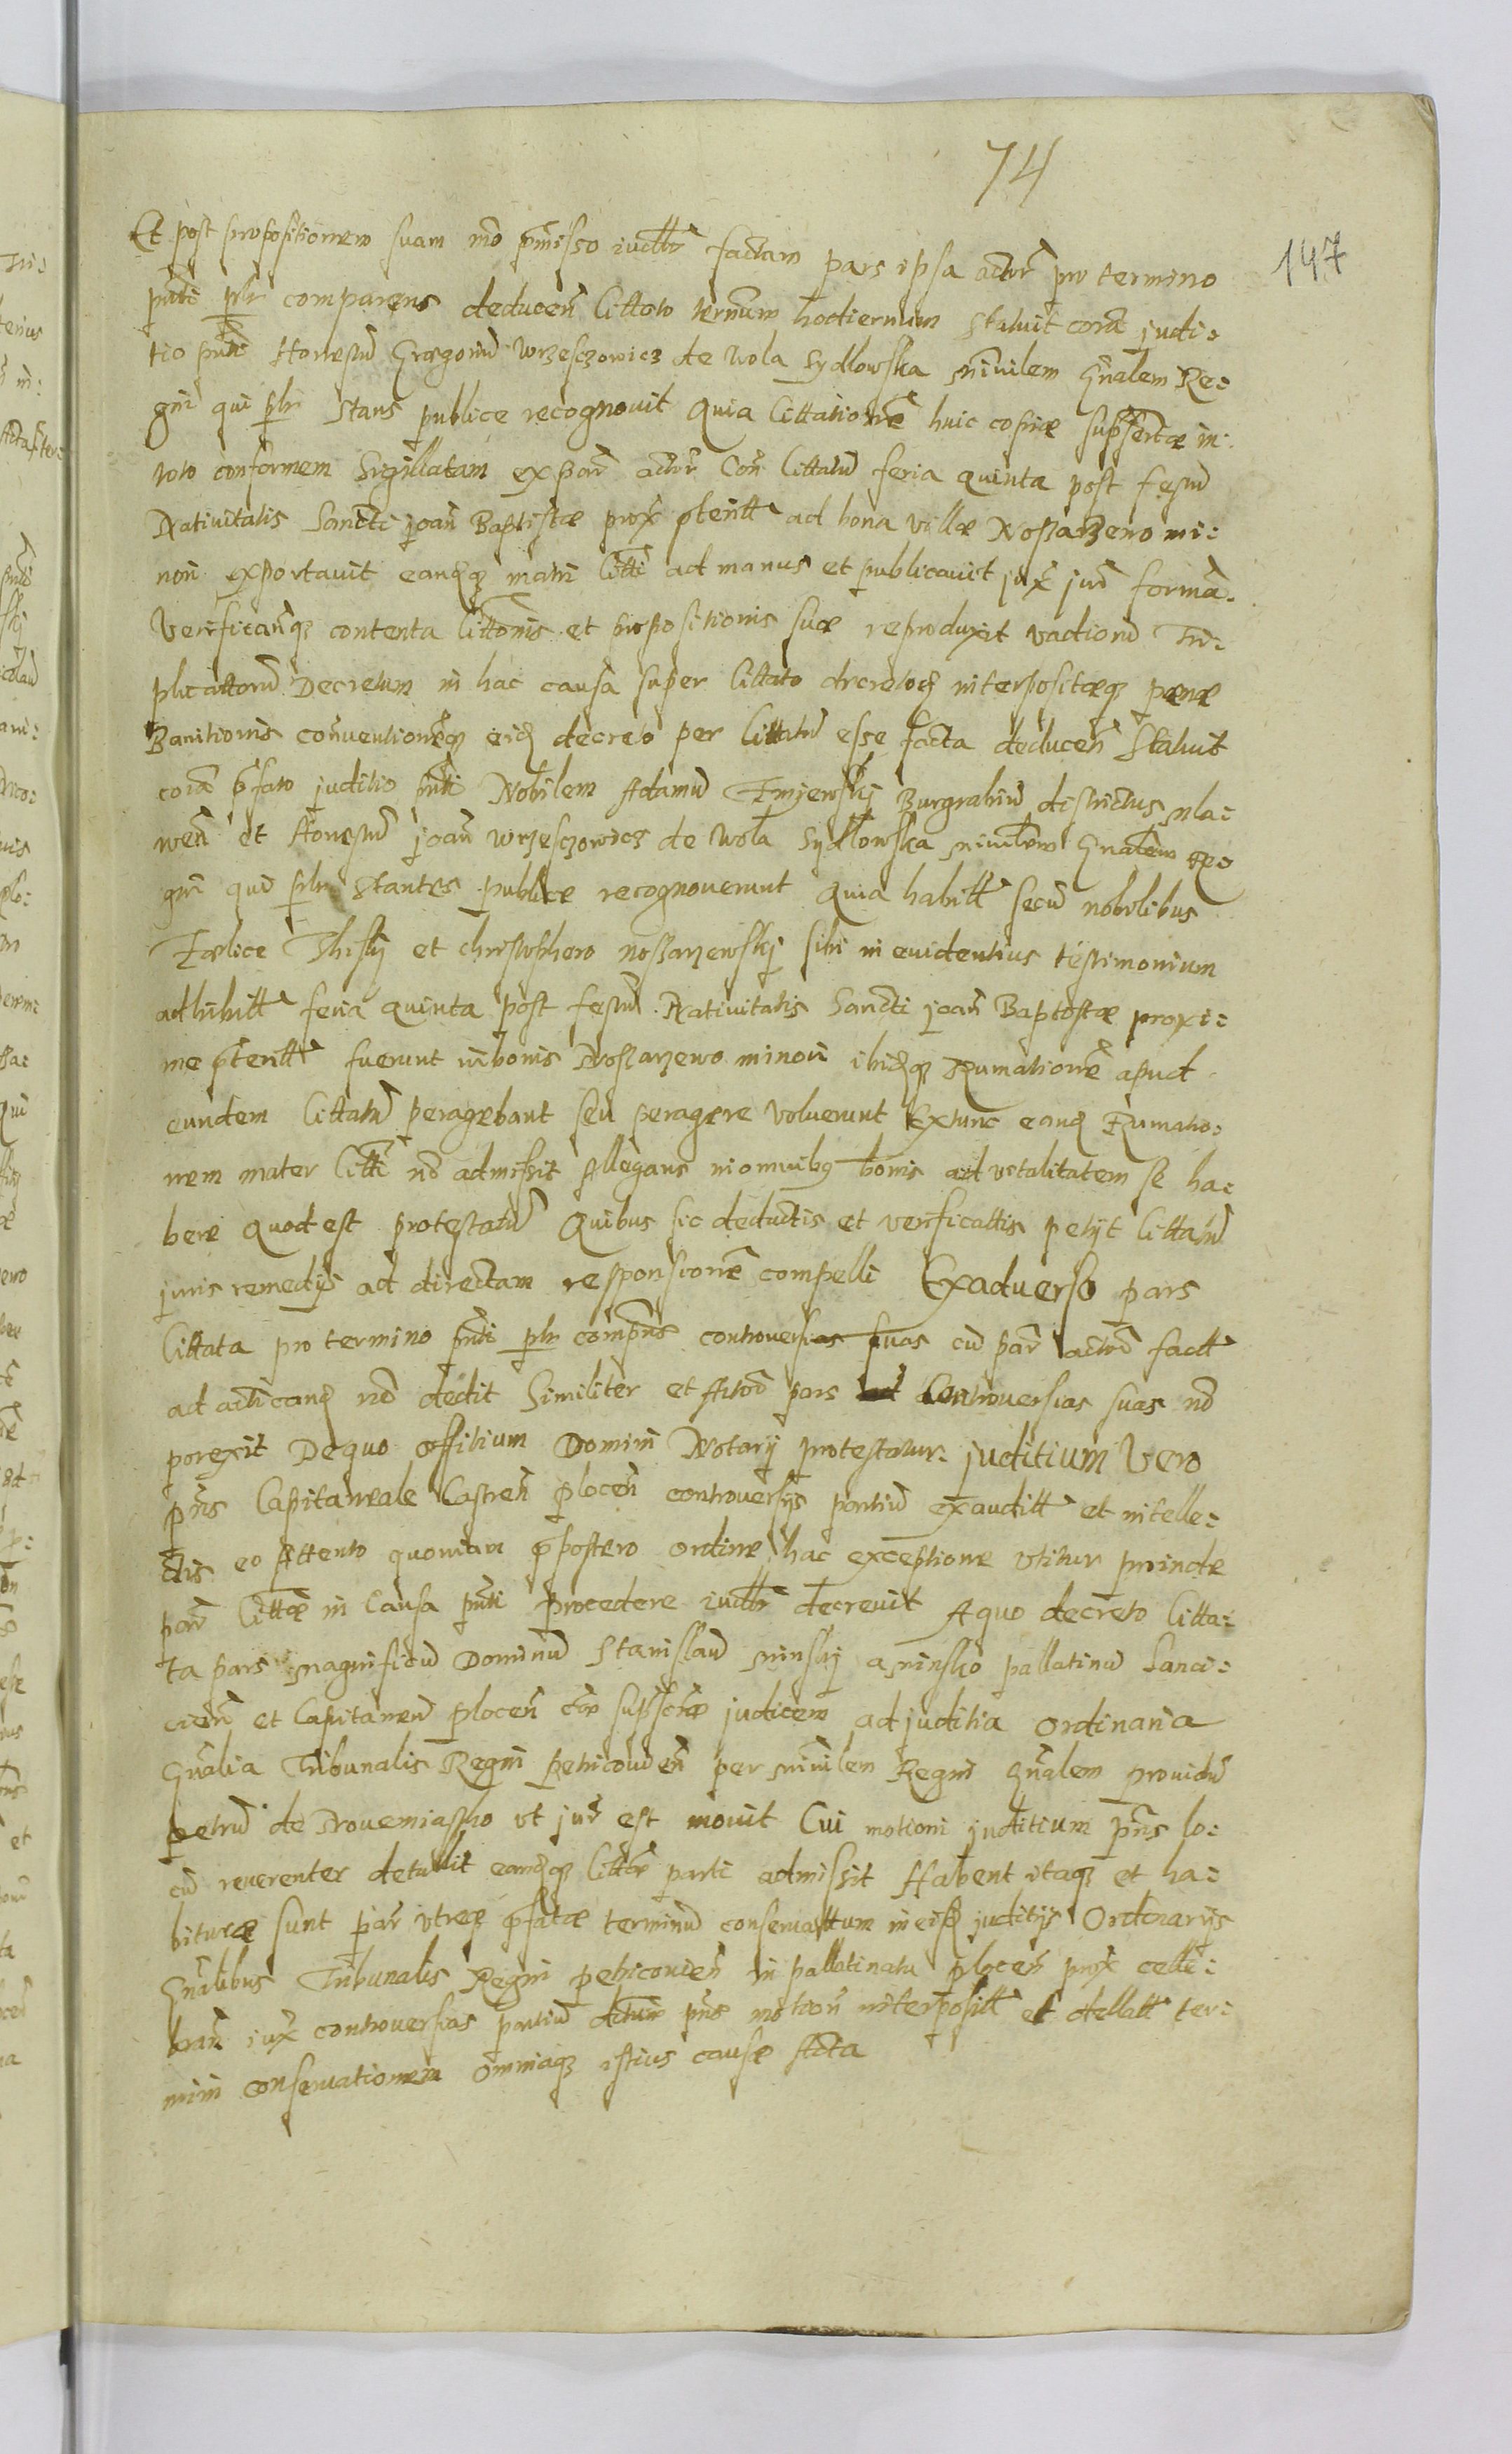 74
147
Et post propositionem suam mo pmisso iudtr factam pars ipsa actor pro termino
pnti plr comparens deducen Cittato termnum hodiernum Statuit cora judi:
tio pnti Honestu Graegoriu Wrzesczowicz de Wola Sydlowska mivilem Gnalem Re:
gni qui plr Stans publice recognovit Quia Cittatione huic copiae supsertae in
toto conformem Sigillatam ex par actor Con Cittatu feria quinta post festu
Nativitatis Sancti joan Baptistae prox pterit ad bona villae Nossarzewo mi:
nori exportavit eandqz matri Citti ad manus et publicavit jux jur forma.
Verificanqz contenta Cittonis et propositionis suae reproduxit vadioru Tri:
plicattoru Decretum in hac causa super Cittato decretoqz interpositaeqz paenae
Banitionis conventioneqz eid decreto per Cittatu esse facta deducen Statuit
cora pfato juditio pnti Nobilem Adamu Tmjewskj Burgrabiu districtus mla:
wen et Honestu joan Wrzesczowicz de Wola Sydlowska mivilem Gnalem Re
gni qui plr Stantes publice recognoverunt Quia habitt secu nobilibus
Faelice Thiskj et Christophero nossarzewskj sibi in evidentius testimonium
adhibitt feria quinta post festu Nativitatis Sancti joan Baptistae proxi:
me pteritt fuerunt in bonis Nossarzewo minori ibidqz Rumatione apud
eundem Cittatu peragebant seu peragere voluerunt Extunc eand Rumatio:
nem mater Citti no admissit Allegans in omnibqz bonis advitalitatem se ha:
bere quod est protestatu Quibus sic deductis et verificattis petijt Cittatu
juris remedijs ad directam responsione compelli Exadverso pars
Cittata pro termino pnti plr compns controversias suas cu par actorea factt
ad acticand no dedit Similiter et Actor pars Controversias suas no
porexit De quo offitium Domini Notarij protestatur. juditium Vero
pns Capitaneale Castren plocen controversijs partiu exauditt et intelle:
ctis eo Attento quoniam ppostero ordine hac exceptione utitur proinde
par Cittae in Causa pnti procedere iudtr decrevit A quo decreto Citta:
ta pars magnificu Dominu Stanislau minskj a minsko pallatinu Lanci:
cien et Capitaneu plocen tor supscrae judicem ad juditia Ordinaria
Gnalia Tribunalis Regni petricovien per mivilem Regni Gnalem providu
petru de Novemiasto ut jur est movit Cui motioni juditium pns lo:
cu reverenter detullit eandqz Cittae parti admissit Habent itaqz et ha:
biturae sunt par utraeqz pfatae terminu conservattum in eisd juditijs Ordinarijs
Gnalibus Tribunalis Regni petricovien in pallatinatu plocen prox celle:
bran jux controversias partiu pns motion interpositt et dellatt ter:
mini conservationem omniaqz istius causae Acta